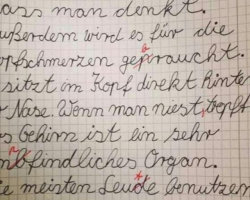 dass man denkt.
ußerdem wird es für die
opfschmerzen gebraucht.
sitzt im Kopf direkt hinte
r Nase. Wenn man niest, tropft
s behirn ist ein sehr
findliches Organ.
e meisten Leude benutzen